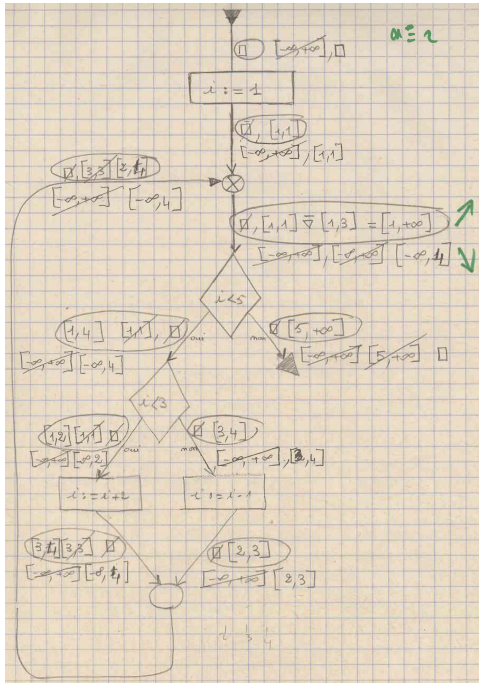 a ≡ 2
□ [-∞,+∞], □
i := 1
□, [1,1]
[-∞,+∞], [1,1]
□, [3,3] [2,4]
[-∞,+∞] [-∞,4]
□, [1,1] ∇ [1,3] = [1,+∞]
[-∞,+∞], [-∞,+∞] [-∞,4]
i<5
[1,4] [1,1], □
oui
non
□ [5,+∞]
[-∞,+∞] [-∞,4]
[-∞,+∞] [5,+∞] □
i<3
[1,2] [1,1] □
oui
non
□ [3,4]
[-∞,+∞] [-∞,2]
[-∞,+∞], [3,4]
i:=i+2
i:=i-1
[3,4] [3,3] □
□ [2,3]
[-∞,+∞] [-∞,4]
[-∞,+∞] [2,3]